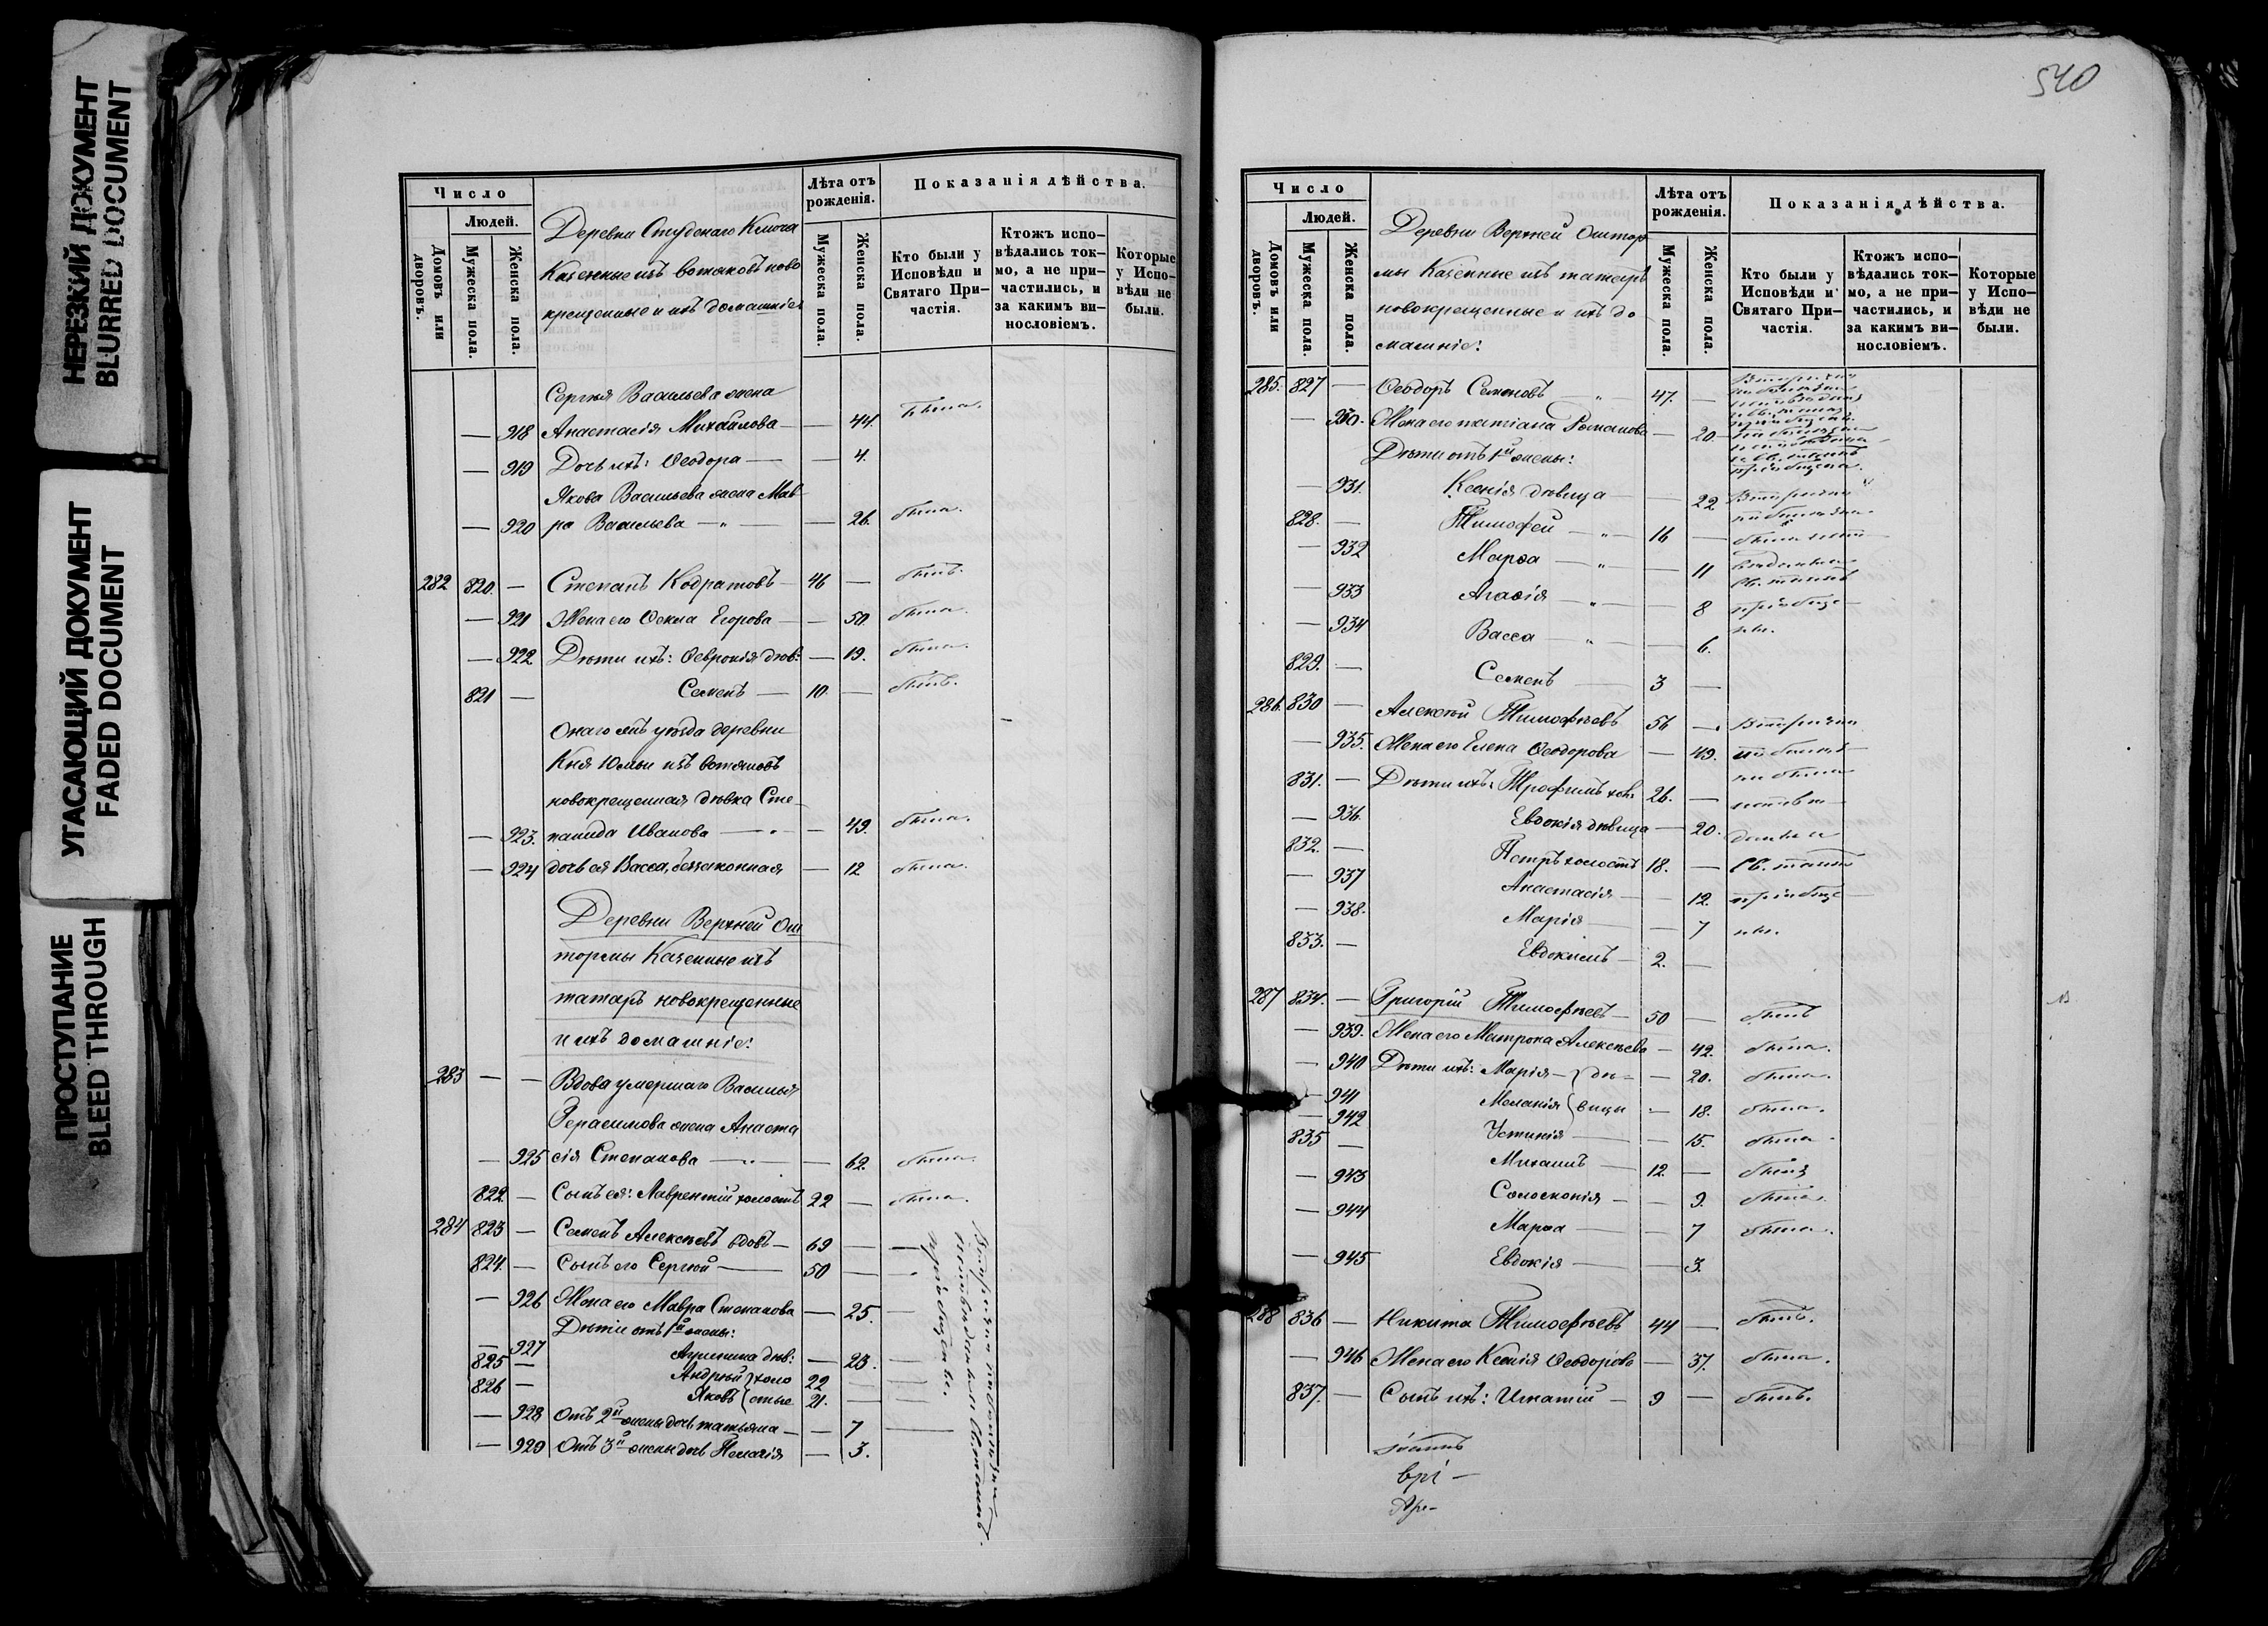 НЕРЕЗКИЙ ДОКУМЕНТ
BLURRED DOCUMENT
УГАСАЮЩИЙ ДОКУМЕНТ
FADED DOCUMENT
ПРОСТУПАНИЕ
BLEED THROUGH
Число
Людей.
Домовъ или дворовъ.
Мужеска пола.
Женска пола.
Деревни Студенаго Ключа
Казенные изъ вотяковъ ново
крещенные и ихъ домашніе:
Лѣта отъ рожденія.
Мужеска пола.
Женска пола.
Показанія дѣйства.
Кто были у Исповѣди и Святаго Причастія.
Ктожъ исповѣдались токмо, а не причастились, и за какимъ винословіемъ.
Которые у Исповѣди не были.
Сергѣя Васильева жена
— 918 Анастасія Михайлова — — 44. была.
— 919 Дочь ихъ: Ѳеодора — — 4.
Якова Васильева жена Мав
— 920 ра Васильева — „ — — 26. была.
282 820. — Степанъ Кодратовъ — 46 — былъ.
— 921 Жена его Ѳекла Егорова — — 50. была.
— 922 Дѣти ихъ: Ѳевронія дѣв: — 19. была.
821 — Семенъ — 10. — былъ.
Онаго жъ уѣзда деревни
Кня Юмьи изъ вотяковъ
новокрещенная дѣвка Сте
— 923. панида Иванова — „ — 49. была.
— 924 дочь ея Васса, беззаконная — 12 была.
Деревни Верхней Ош
тормы Казенные изъ
татаръ новокрещенные
и ихъ домашніе:
283 — — Вдова умершаго Василья
Герасимова жена Анаста
— 925 сія Степанова — „ — — 62. была.
822 — Сынъ ея: Лаврентій холостъ 22 — была.
284 823 — Семенъ Алексѣевъ вдовъ — 69 — —
824. — Сынъ его Сергѣй — 50 — „
— 926 Жена его Мавра Степанова — 25. —
Дѣти отъ 1й жены:
— 927 Агрипина дѣв: — 23. —
825 — Андрей } холо 22 — —
826 — Яковъ { стые 21. — —
— 928 Отъ 2й жены дочь татьяна — — 7 —
— 929 Отъ 3й жены дочь Пелагія — 3.
540
Число
Людей.
Домовъ или дворовъ.
Мужеска пола.
Женска пола.
Деревни Верхней Оштор
мы Казенные изъ татаръ
новокрещенные и ихъ до
машніе:
Лѣта отъ рожденія.
Мужеска пола.
Женска пола.
Показанія дѣйства.
Кто были у Исповѣди и Святаго Причастія.
Ктожъ исповѣдались токмо, а не причастились, и за какимъ винословіемъ.
Которые у Исповѣди не были.
285. 827 — Ѳеодоръ Семеновъ — „ — 47. —
— 930. Жена его татіана Романова — 20
Дѣти отъ 1й жены:
— 931. Ксенія дѣвица — — 22
828. — Тимофей — „ — 16 —
— 932 Марѳа — „ — — 11
— 933 Агаѳія — „ — — 8
— 934 Васса — „ — — 6.
829. — Семенъ — 3 —
286. 830 — Алексѣй Тимофѣевъ 56 —
— 935. Жена его Елена Ѳеодорова — 49.
831. — Дѣти ихъ: Трофимъ хол: 26. —
— 936. Евдокія дѣвица — 20.
832. — Петръ холостъ 18. — Св. таинъ
— 937 Анастасія — — 12. пріобще
— 938. Марія — — 7 ны.
833. — Евдокимъ — 2. —
287 834. — Григорій Тимофѣевъ — 50 — былъ
— 939. Жена его Матрона Алексѣева — 42. была.
— 940 Дѣти ихъ: Марія — } дѣ — — 20. была.
— 941 Меланія { вицы — 18. была.
— 942 Устинія — — 15. была.
835 — Михаилъ — 12. — былъ
— 943 Соломонія — — 9. была.
— 944 Марѳа — — 7 была.
— 945 Евдокія — — 3.
288 836 — Никита Тимофѣевъ 44 — былъ.
— 946 Жена его Ксенія Ѳеодорова — 37. была.
837. — Сынъ ихъ: Игнатій — 9 — былъ.